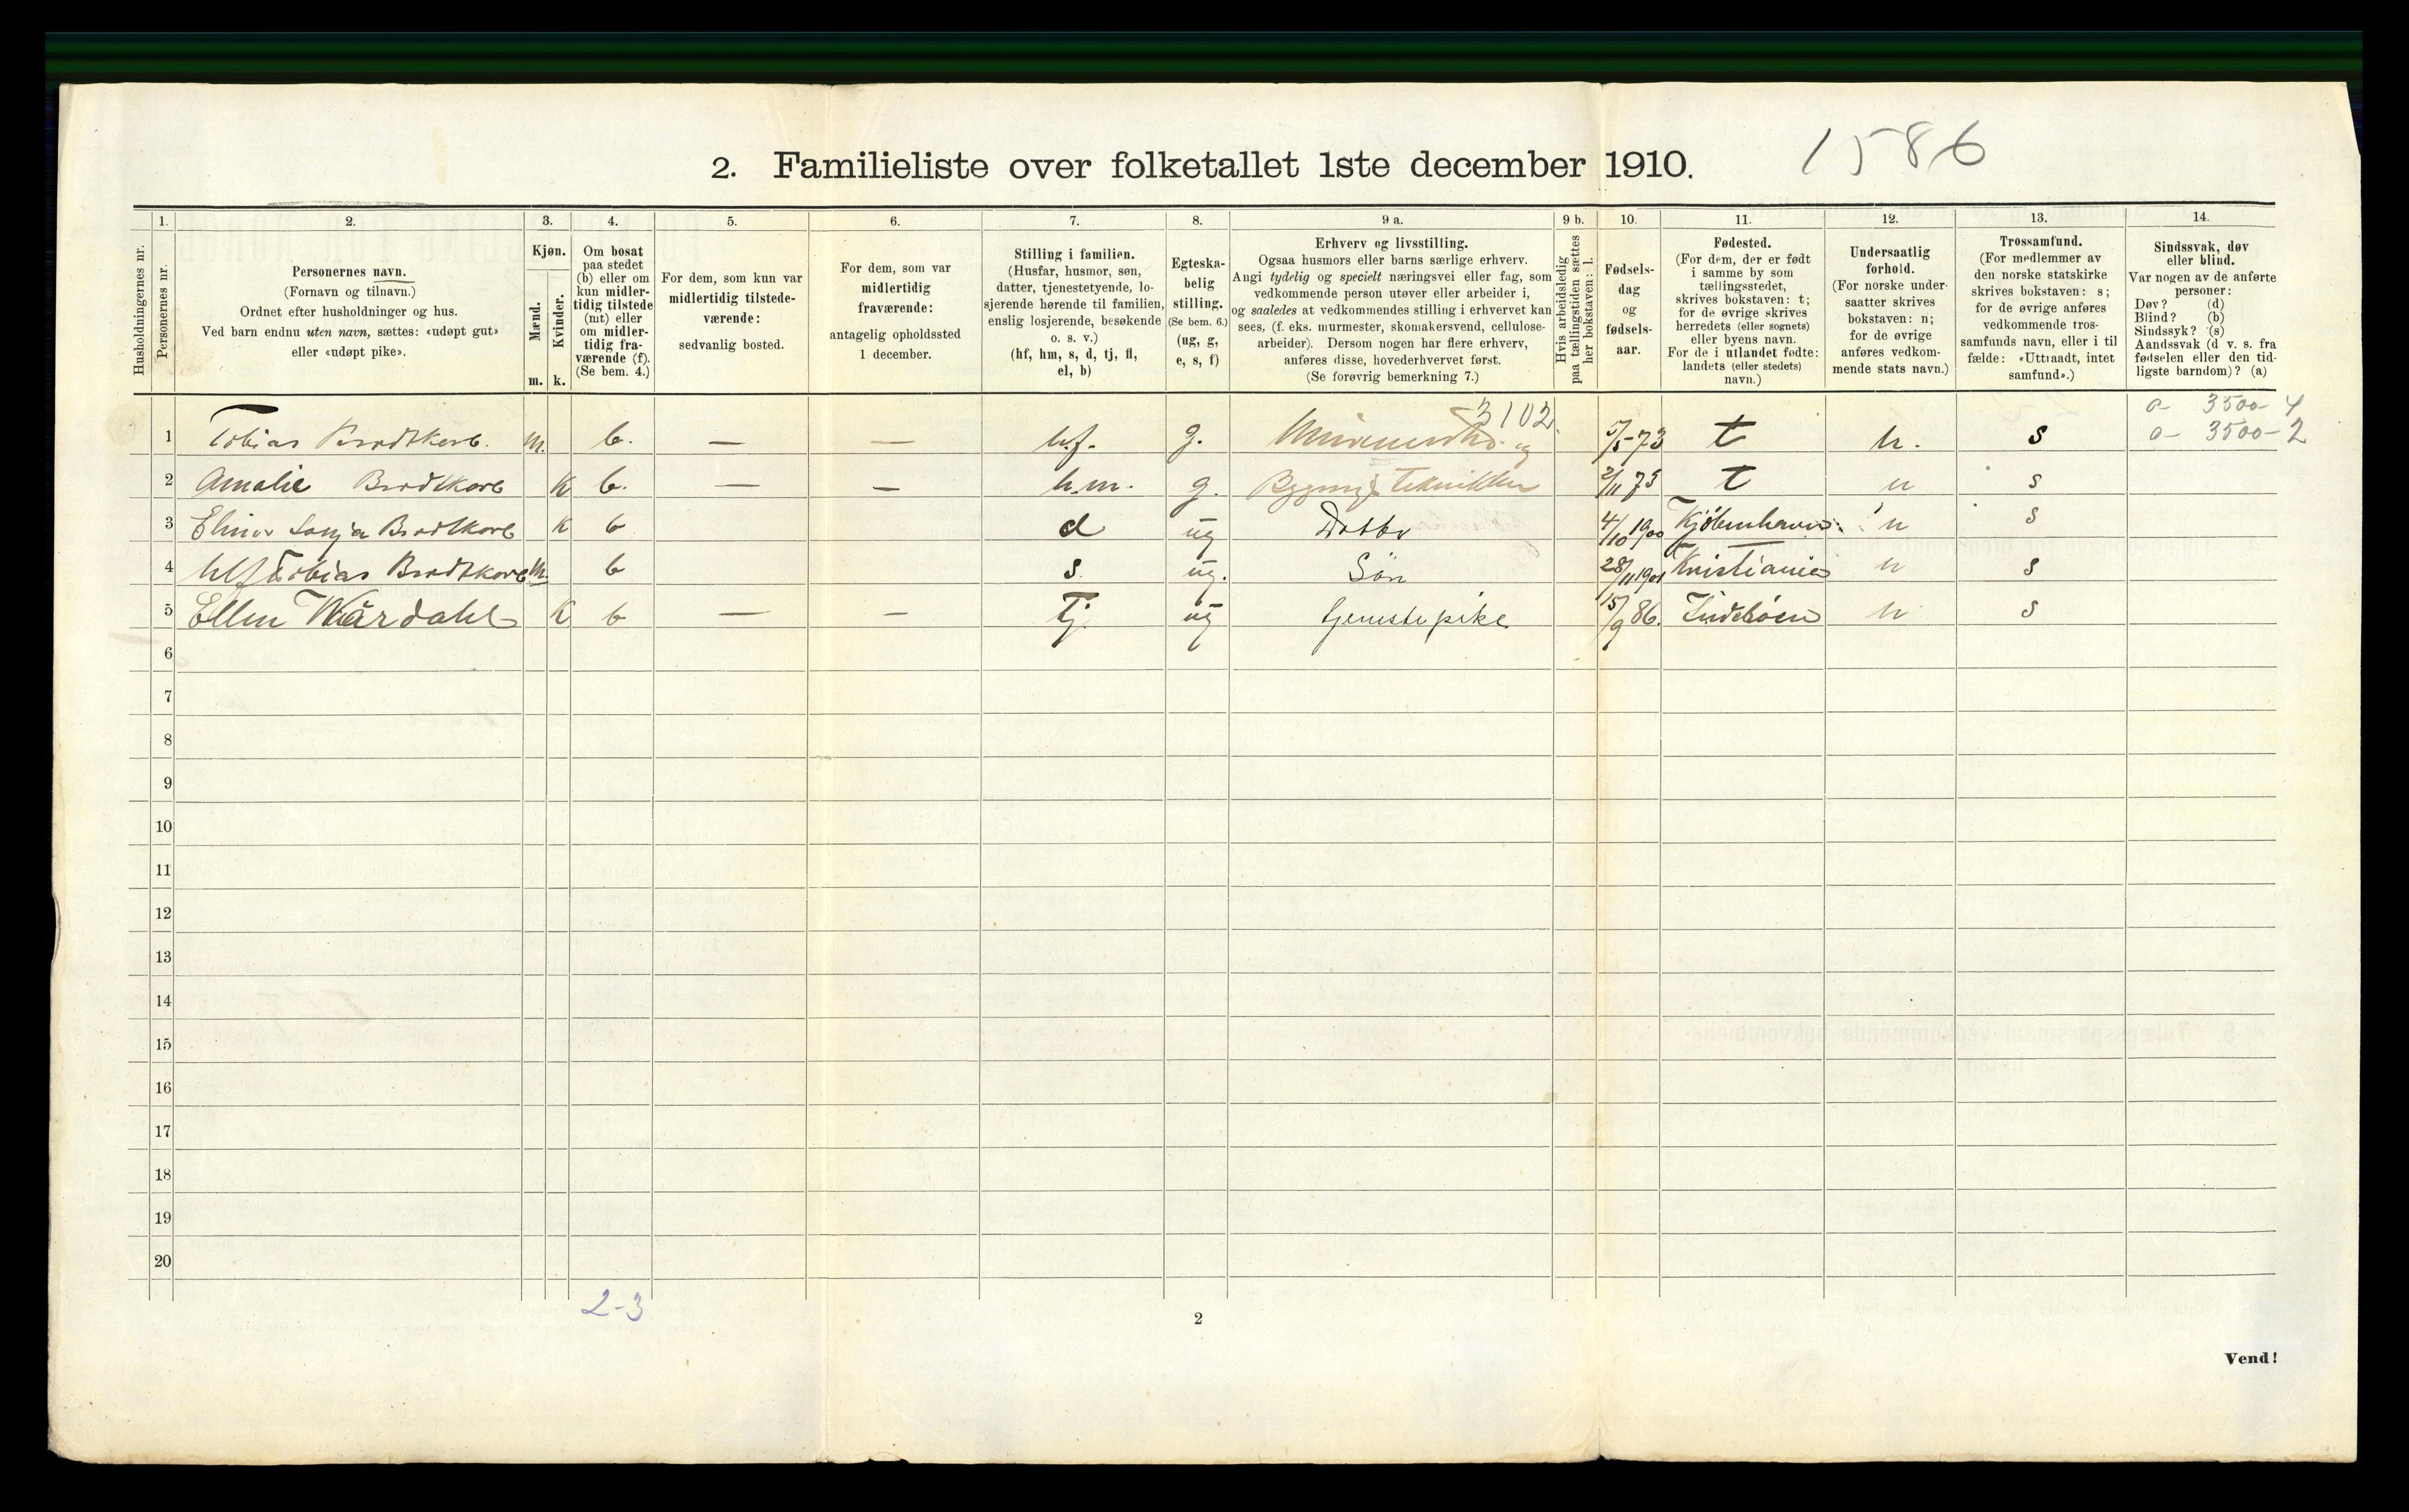 2. Familieliste over folketallet 1ste december 1910.
1586
Husholdningernes nr.
1.
Personernes nr.
2.
Personernes navn.
(Fornavn og tilnavn.)
Ordnet efter husholdninger og hus.
Ved barn endnu uten navn, sættes: «udøpt gut»
eller «udøpt pike».
3.
Kjøn.
Mænd.
Kvinder.
m. k.
4.
Om bosat
paa stedet
(b) eller om
kun midler-
tidig tilstede
(mt) eller
om midler-
tidig fra-
værende (f).
(Se bem. 4.)
5.
For dem, som kun var
midlertidig tilstede-
værende:
sedvanlig bosted.
6.
For dem, som var
midlertidig
fraværende:
antagelig opholdssted
1 december.
7.
Stilling i familien.
(Husfar, husmor, søn,
datter, tjenestetyende, lo-
sjerende hørende til familien,
enslig losjerende, besøkende
o. s. v.)
(hf, hm, s, d, tj, fl,
el, b)
8.
Egteska-
belig
stilling.
(Se bem. 6.)
(ug, g,
e, s, f)
9 a.
Erhverv og livsstilling.
Ogsaa husmors eller barns særlige erhverv.
Angi tydelig og specielt næringsvei eller fag, som
vedkommende person utøver eller arbeider i,
og saaledes at vedkommendes stilling i erhvervet kan
sees, (f. eks. murmester, skomakersvend, cellulose-
arbeider). Dersom nogen har flere erhverv,
anføres disse, hovederhvervet først.
(Se forøvrig bemerkning 7.)
9 b.
Hvis arbeidsledig
paa tællingstiden sættes
her bokstaven: l.
10.
Fødsels-
dag
og
fødsels-
aar.
11.
Fødested.
(For dem, der er født
i samme by som
tællingsstedet,
skrives bokstaven: t;
for de øvrige skrives
herredets (eller sognets)
eller byens navn.
For de i utlandet fødte:
landets (eller stedets)
navn.)
12.
Undersaatlig
forhold.
(For norske under-
saatter skrives
bokstaven: n;
for de øvrige
anføres vedkom-
mende stats navn.)
13.
Trossamfund.
(For medlemmer av
den norske statskirke
skrives bokstaven: s;
for de øvrige anføres
vedkommende tros-
samfunds navn, eller i til
fælde: «Uttraadt, intet
samfund».)
14.
Sindssvak, døv
eller blind.
Var nogen av de anførte
personer:
Døv? (d)
Blind? (b)
Sindssyk? (s)
Aandssvak (d v. s. fra
fødselen eller den tid-
ligste barndom)? (a)
3102. a- 3500-4
1 Tobias Brodtkorb. m. b. — — h.f. g. og 5/5-73 t n. s a- 3500-2
2 Amalie Brodtkorb K b. — — h.m. g. Bygnings Tekniker 2/11 73 t n s
3 Elinor Sonja Brodtkorb K b d ug Datter 4/10 1900 Kjöbenhavn. n s
4 Ulf Tobias Brodtkorb m. b s. ug. Sön 28/11 1901 Kristiania n s
5 Ellen Wårdahl K b — — Tj. ug tjenestepike 15/9 86. n s
6
7
8
9
10
11
12
13
14
15
16
17
18
19
20
2-3
2
Vend!